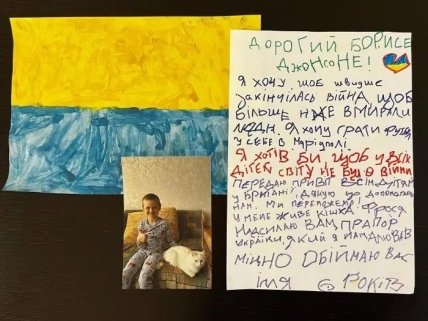 ДОРОГИЙ БОРИСЕ
ДЖОНСОНЕ!
Я ХОЧУ, ЩОБ ШВИДШЕ
ЗАКІНЧИЛАСЬ ВІЙНА, ЩОБ
БІЛЬШЕ НЕ ВМИРАЛИ
ЛЮДИ. Я ХОЧУ ГРАТИ
У СЕБЕ В МАРІУПОЛІ.
Я ХОТІВ БИ, ЩОБ У ВСІХ
ДІТЕЙ СВІТУ НЕ БУЛО ВІЙНИ
ПЕРЕДАЮ ПРИВІТ ВСІМ ДІТЯМ
У БРИТАНІЇ, ДЯКУЮ ЩО ДОПОМОГЛИ
НАМ. МИ ПЕРЕМОЖЕМО!
У МЕНЕ ЖИВЕ КІШКА ФРОСЯ
НАДСИЛАЮ ВАМ ПРАПОР
УКРАЇНИ, ЯКИЙ Я НАМАЛЮВАВ
МІЦНО ОБІЙМАЮ ВАС
ІЛЛЯ 6 РОКІВ